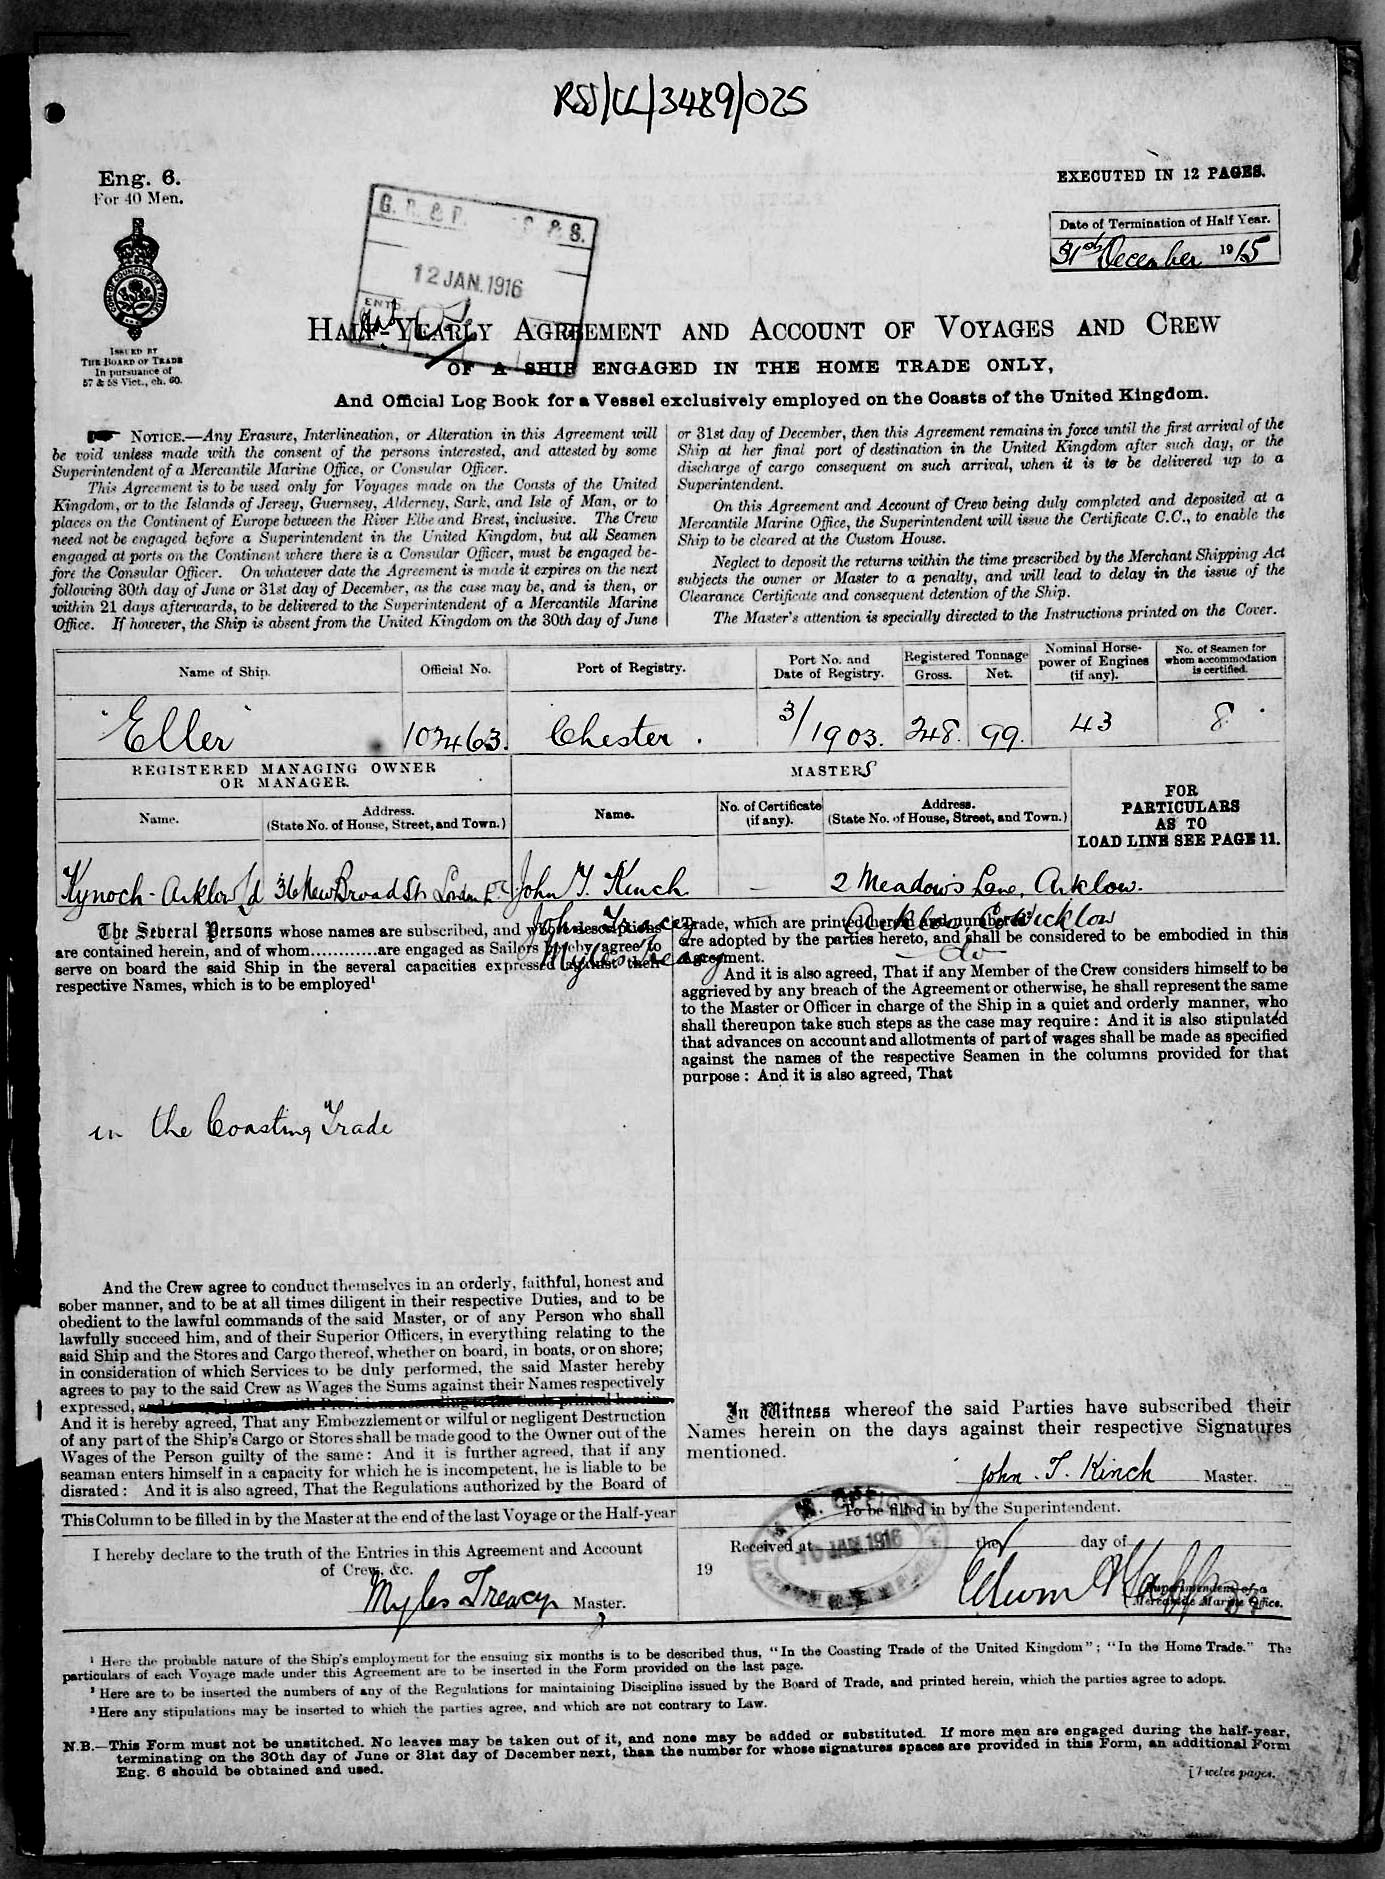 RSS/CL/3489/025
Eng. 6.
For 40 Men.
EXECUTED IN 12 PAGES.
Date of Termination of Half Year.
31st December 1915
12 JAN. 1916
ISSUED BY
THE BOARD OF TRADE
In pursuance of
57 & 58 Vict., ch. 60.
HALF-YEARLY AGREEMENT AND ACCOUNT OF VOYAGES AND CREW
OF A SHIP ENGAGED IN THE HOME TRADE ONLY,
And Official Log Book for a Vessel exclusively employed on the Coasts of the United Kingdom.
NOTICE.—Any Erasure, Interlineation, or Alteration in this Agreement will
be void unless made with the consent of the persons interested, and attested by some
Superintendent of a Mercantile Marine Office, or Consular Officer.
This Agreement is to be used only for Voyages made on the Coasts of the United
Kingdom, or to the Islands of Jersey, Guernsey, Alderney, Sark, and Isle of Man, or to
places on the Continent of Europe between the River Elbe and Brest, inclusive. The Crew
need not be engaged before a Superintendent in the United Kingdom, but all Seamen
engaged at ports on the Continent where there is a Consular Officer, must be engaged be-
fore the Consular Officer. On whatever date the Agreement is made it expires on the next
following 30th day of June or 31st day of December, as the case may be, and is then, or
within 21 days afterwards, to be delivered to the Superintendent of a Mercantile Marine
Office. If however, the Ship is absent from the United Kingdom on the 30th day of June
or 31st day of December, then this Agreement remains in force until the first arrival of the
Ship at her final port of destination in the United Kingdom after such day, or the
discharge of cargo consequent on such arrival, when it is to be delivered up to a
Superintendent.
On this Agreement and Account of Crew being duly completed and deposited at a
Mercantile Marine Office, the Superintendent will issue the Certificate C.C., to enable the
Ship to be cleared at the Custom House.
Neglect to deposit the returns within the time prescribed by the Merchant Shipping Act
subjects the owner or Master to a penalty, and will lead to delay in the issue of the
Clearance Certificate and consequent detention of the Ship.
The Master's attention is specially directed to the Instructions printed on the Cover.
Name of Ship. Official No. Port of Registry. Port No. and Date of Registry. Registered Tonnage Gross. Net. Nominal Horse-power of Engines (if any). No. of Seamen for whom accommodation is certified.
"Eller" 102463. Chester. 3/1903. 248. 99. 43 8.
REGISTERED MANAGING OWNER OR MANAGER.
MASTERS
FOR PARTICULARS AS TO LOAD LINE SEE PAGE 11.
Name. Address. (State No. of House, Street, and Town.) Name. No. of Certificate (if any). Address. (State No. of House, Street, and Town.)
Kynoch-Arklow Ld 36 New Broad St. London E.C. John T. Kinch — 2 Meadows Lane, Arklow.
John Tracey Arklow Co Wicklow
Myles Treacy do
The Several Persons whose names are subscribed, and whose descriptions
are contained herein, and of whom............are engaged as Sailors hereby agree to
serve on board the said Ship in the several capacities expressed against their
respective Names, which is to be employed¹
in the Coasting Trade
And the Crew agree to conduct themselves in an orderly, faithful, honest and
sober manner, and to be at all times diligent in their respective Duties, and to be
obedient to the lawful commands of the said Master, or of any Person who shall
lawfully succeed him, and of their Superior Officers, in everything relating to the
said Ship and the Stores and Cargo thereof, whether on board, in boats, or on shore;
in consideration of which Services to be duly performed, the said Master hereby
agrees to pay to the said Crew as Wages the Sums against their Names respectively
expressed,
And it is hereby agreed, That any Embezzlement or wilful or negligent Destruction
of any part of the Ship's Cargo or Stores shall be made good to the Owner out of the
Wages of the Person guilty of the same: And it is further agreed, that if any
seaman enters himself in a capacity for which he is incompetent, he is liable to be
disrated: And it is also agreed, That the Regulations authorized by the Board of
Trade, which are printed herein and numbered²
are adopted by the parties hereto, and shall be considered to be embodied in this
Agreement.
And it is also agreed, That if any Member of the Crew considers himself to be
aggrieved by any breach of the Agreement or otherwise, he shall represent the same
to the Master or Officer in charge of the Ship in a quiet and orderly manner, who
shall thereupon take such steps as the case may require: And it is also stipulated
that advances on account and allotments of part of wages shall be made as specified
against the names of the respective Seamen in the columns provided for that
purpose: And it is also agreed, That
In Witness whereof the said Parties have subscribed their
Names herein on the days against their respective Signatures
mentioned.
John T. Kinch Master.
This Column to be filled in by the Master at the end of the last Voyage or the Half-year
I hereby declare to the truth of the Entries in this Agreement and Account
of Crew, &c.
Myles Treacy Master.
To be filled in by the Superintendent.
Received at the day of
19
10 JAN. 1916
Edwin
Superintendent of a
Mercantile Marine Office.
¹ Here the probable nature of the Ship's employment for the ensuing six months is to be described thus, "In the Coasting Trade of the United Kingdom"; "In the Home Trade." The
particulars of each Voyage made under this Agreement are to be inserted in the Form provided on the last page.
² Here are to be inserted the numbers of any of the Regulations for maintaining Discipline issued by the Board of Trade, and printed herein, which the parties agree to adopt.
³ Here any stipulations may be inserted to which the parties agree, and which are not contrary to Law.
N.B.—This Form must not be unstitched. No leaves may be taken out of it, and none may be added or substituted. If more men are engaged during the half-year,
terminating on the 30th day of June or 31st day of December next, than the number for whose signatures spaces are provided in this Form, an additional Form
Eng. 6 should be obtained and used.
[Twelve pages.